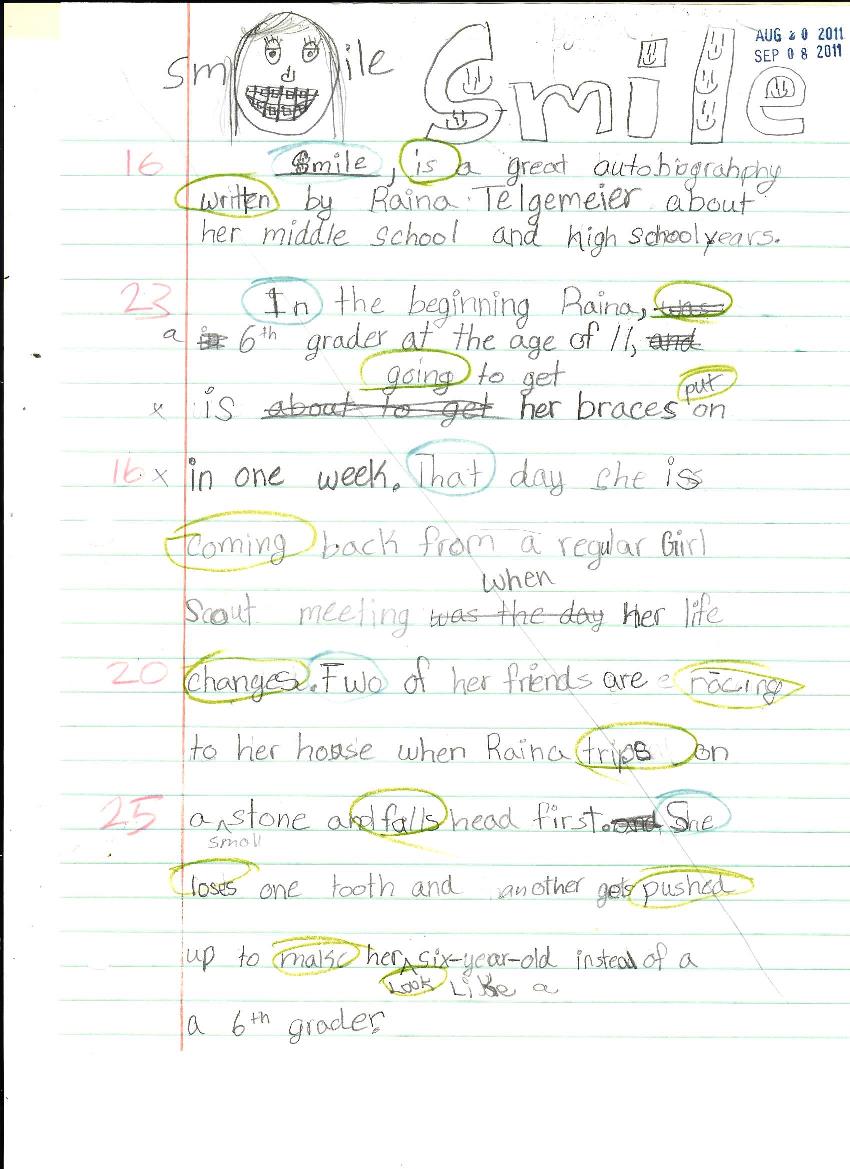 smile Smile
AUG 20 2011
SEP 08 2011
16 Smile, is a great autobiograhphy
written by Raina Telgemeier about
her middle school and high school years.
23 In the beginning Raina, was
a is 6th grader at the age of 11, and
going to get put
x is about to get her braces on
16 x in one week. That day she is
coming back from a regular Girl
when
Scout meeting was the day her life
20 changes. Two of her friends are racing
to her house when Raina trips on
25 a ^ stone and falls head first. and She
small
loses one tooth and another gets pushed
up to make her ^ six-year-old instead of a
Look Like a
a 6th grader.